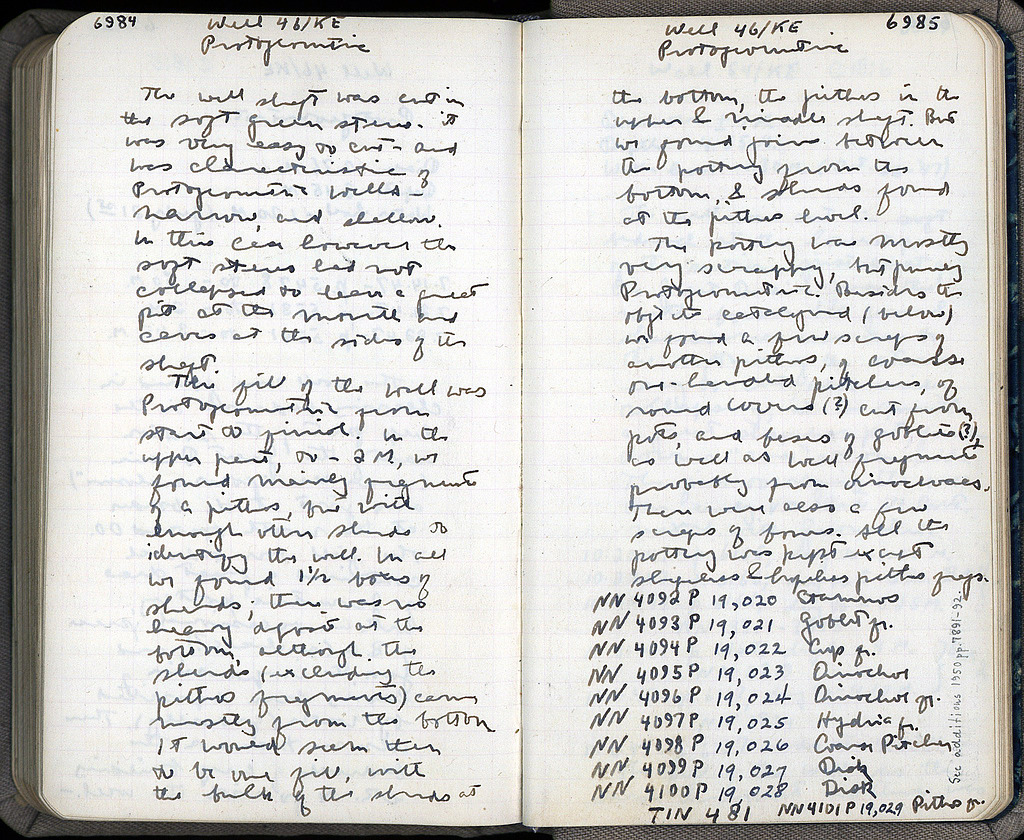 6984
Well 46/KE
Protogeometric
The well shaft was cut in
the soft green stereo. it
was very easy to cut - and
was characteristic of
Protogeometric wells,
narrow, and shallow.
In this case however the
soft stereo had not
collapsed to leave a great
pit at the mouth and
caves at the sides of the
shaft.
The fill of the well was
Protogeometric from
start to finish. In the
upper part, to - 2 M, we
found mainly fragments
of a pithos, but with
enough other sherds to
identify the well. In all
we found 1½ boxes of
sherds; there was no
heavy deposit at the
bottom, although the
sherds (excluding the
pithos fragments) came
mostly from the bottom
It would seem then
to be one fill, with
the bulk of the sherds at
6985
Well 46/KE
Protogeometric
the bottom, the pithos in the
upper & middle shaft. But
we found joins between
the pottery from the
bottom, & sherds found
at the pithos level.
The pottery was mostly
very scrappy, but purely
Protogeometric. Besides the
objects catalogued (below)
we found a few scraps of
another pithos, of coarse
one-handled pitchers, of
round covers (?) cut from
pots, and bases of goblets (?),
as well as wall fragments
probably from oinochoes.
There were also a few
scraps of bones. All the
pottery was kept except
shapeless & hopeless pithos frags.
NN 4092 P 19,020 Stamnos
NN 4093 P 19,021 Goblet fr.
NN 4094 P 19,022 Cup fr.
NN 4095 P 19,023 Oinochoe
NN 4096 P 19,024 Oinochoe fr.
NN 4097 P 19,025 Hydria fr.
NN 4098 P 19,026 Coarse Pitcher
NN 4099 P 19,027 Disk
NN 4100 P 19,028 Disk
TIN 481 NN 4101 P 19,029 Pithos fr.
See additions 1950 pp. 7891-92.